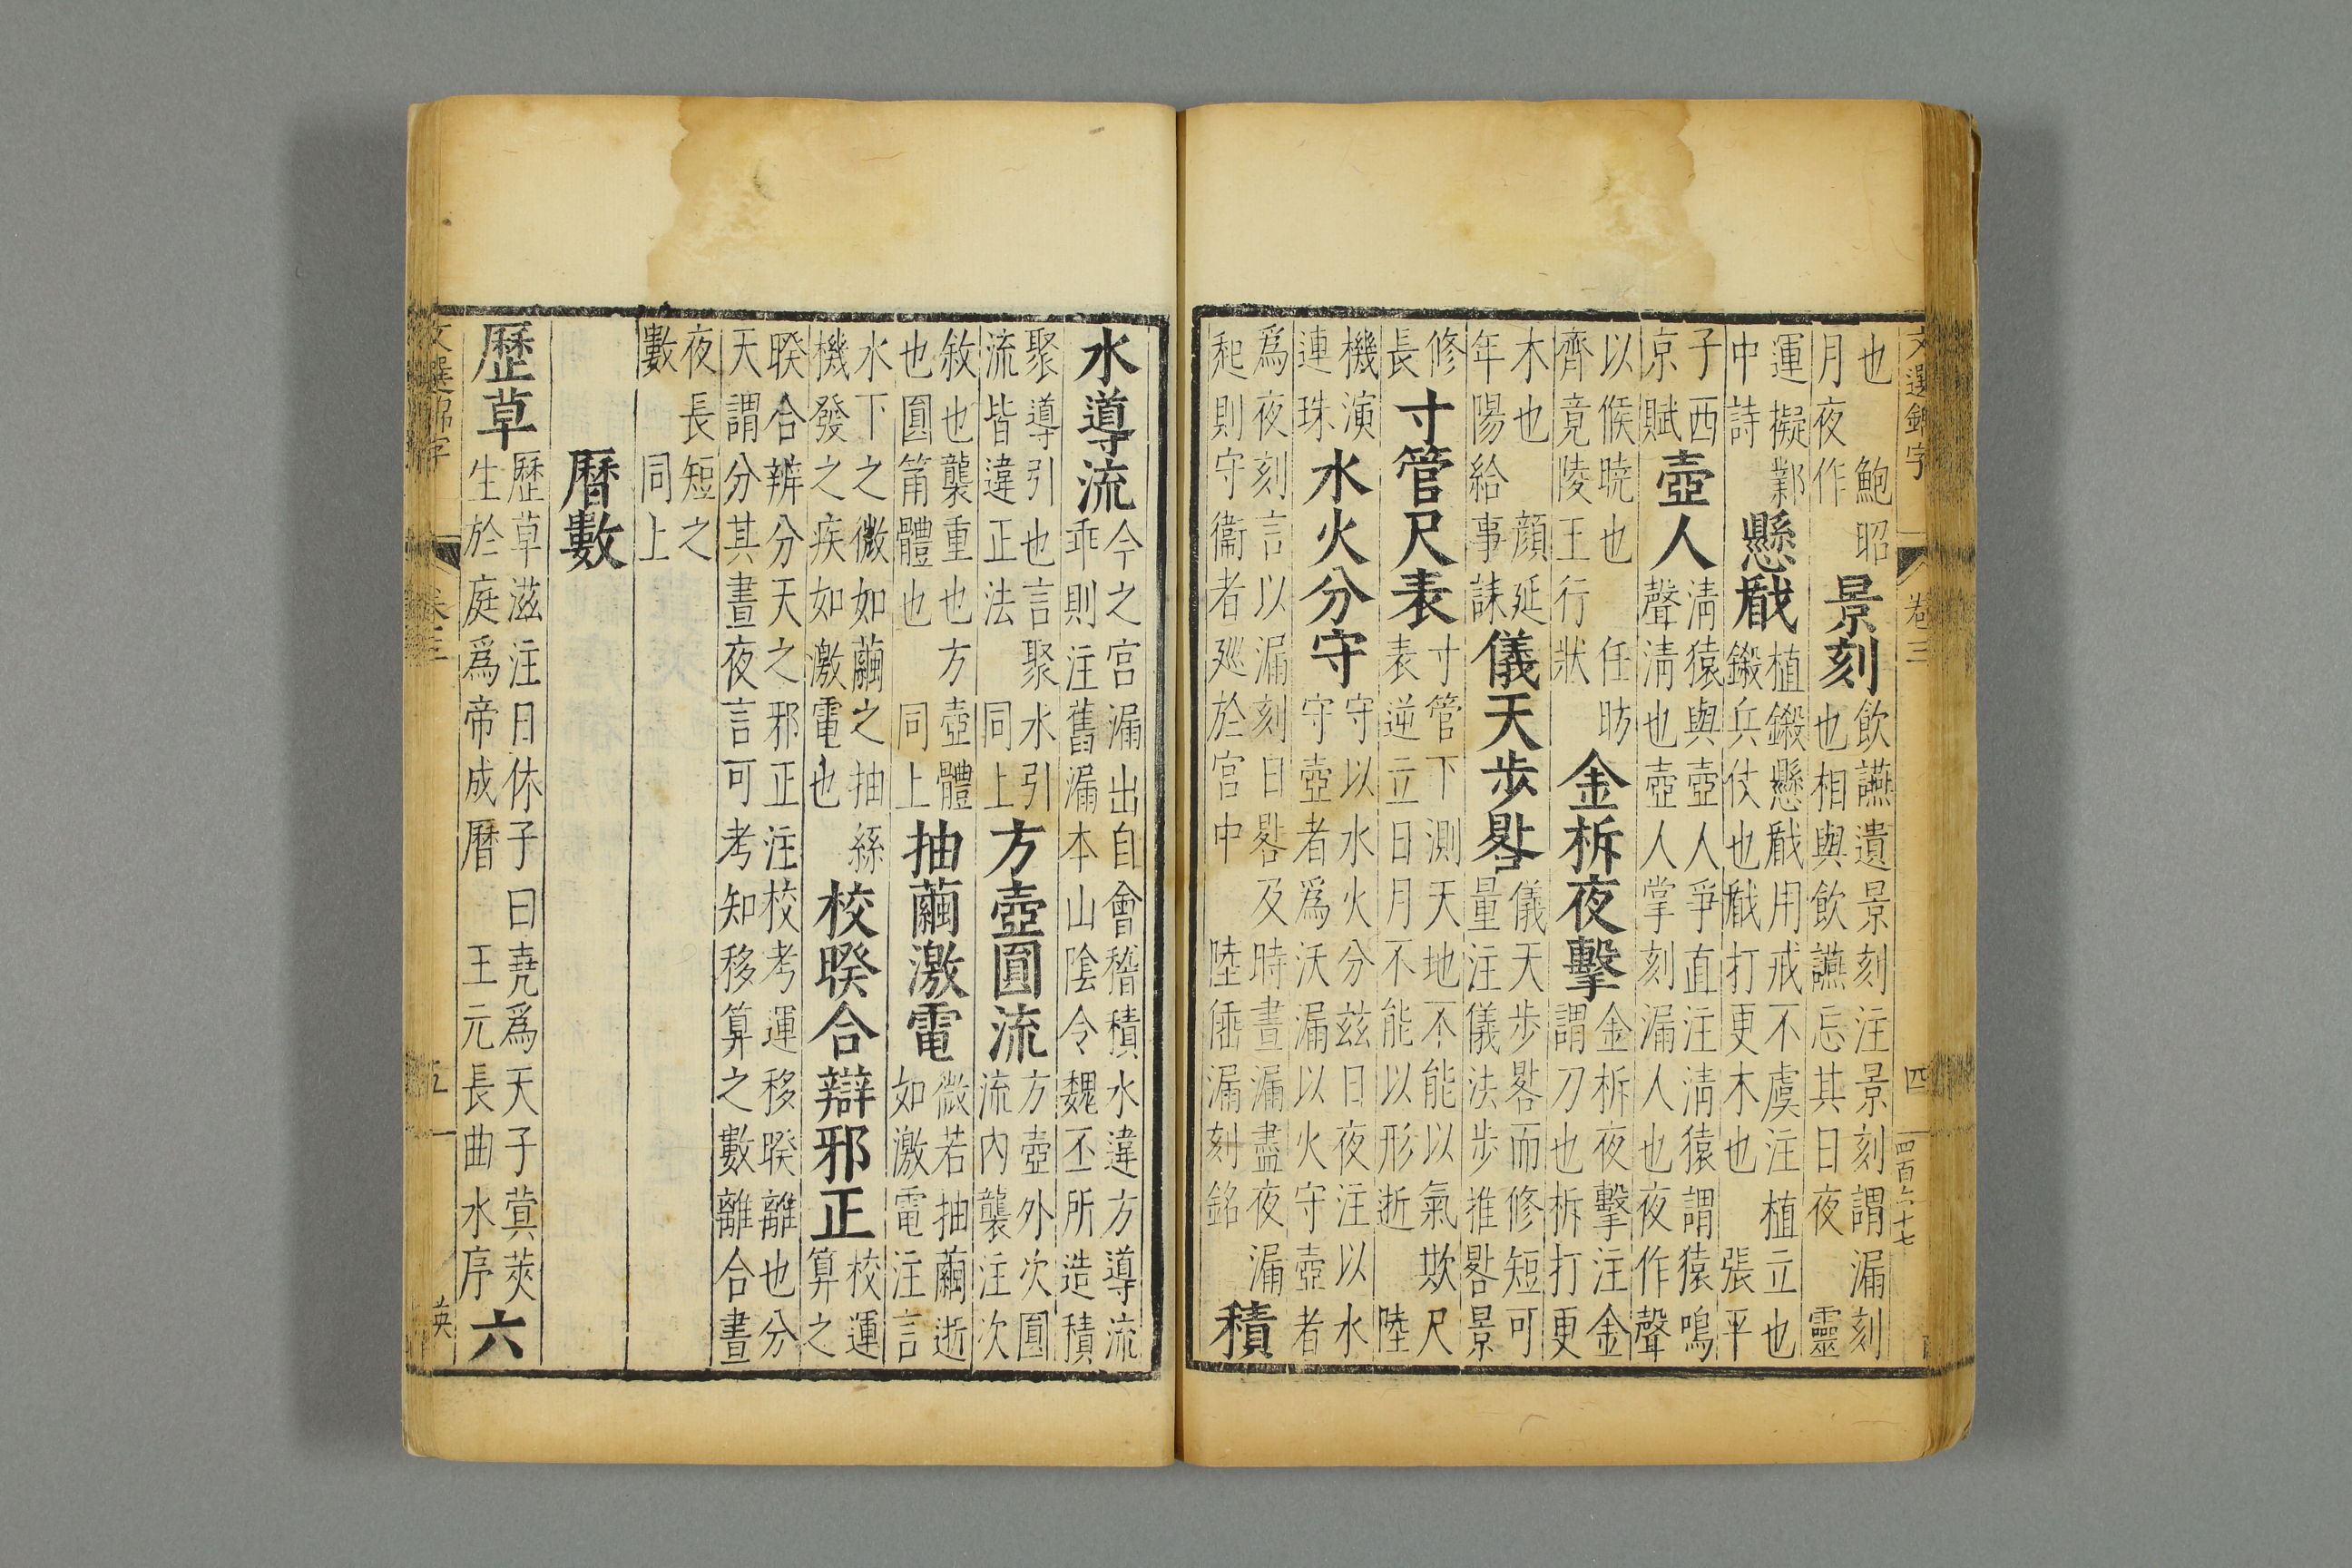 文選錦字 卷三 四 四百六十七
也 鮑昭
月夜作
景刻
飲讌遺景刻注景刻謂漏刻
也相與飲讌忘其日夜 靈
運擬鄴
中詩
懸瞂
植鎩懸瞂用戒不虞注植立也
鎩兵仗也瞂打更木也 張平
子西
京賦
壺人
淸猿與壺人爭直注淸猿謂猿鳴
聲淸也壺人掌刻漏人也夜作聲
以候曉也 任昉
齊竟陵王行狀
金柝夜擊
金柝夜擊注金
謂刀也柝打更
木也 顔延
年陽給事誄
儀天步晷
儀天步晷而修短可
量注儀法步推晷景
修
長
寸管尺表
寸管下測天地不能以氣欺尺
表逆立日月不能以形逝 陸
機演
連珠
水火分守
守以水火分兹日夜注以水
守壺者爲沃漏以火守壺者
爲夜刻言以漏刻日晷及時晝漏盡夜漏
起則守衞者廵於宫中 陸倕漏刻銘
積
水導流
今之宫漏出自會稽積水違方導流
乖則注舊漏本山隂令魏丕所造積
聚導引也言聚水引
流皆違正法 同上
方壺圓流
方壺外次圓
流内襲注次
敘也襲重也方壺體
也圓筩體也 同上
抽繭激電
微若抽繭逝
如激電注言
水下之微如繭之抽絲
機發之疾如激電也
校暌合辯邪正
校運
算之
暌合辨分天之邪正 注校考運移暌離也分
天謂分其晝夜言可考知移算之數離合晝
夜長短之
數 同上
曆數
歷草
歷草滋注日休子曰堯爲天子蓂莢
生於庭爲帝成曆 王元長曲水序
六
文選錦字 卷三 五 英